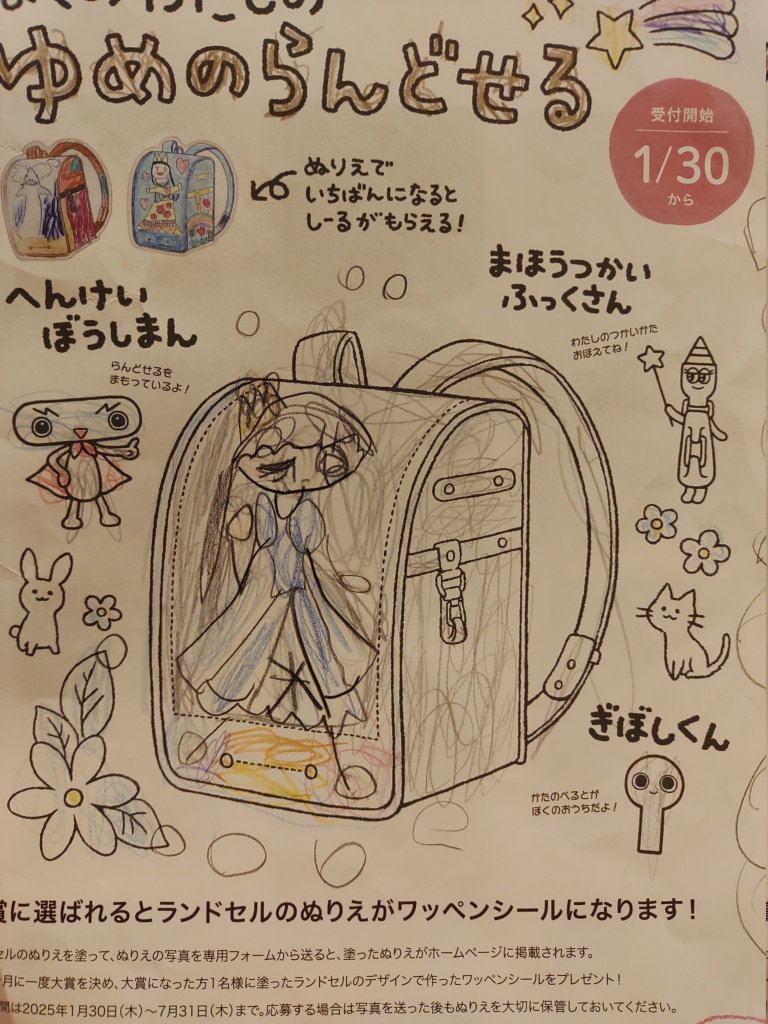 ゆめのらんどせる
受付開始
1/30
から
ぬりえで
いちばんになると
しーるがもらえる!
まほうつかい
ふっくさん
わたしのつかいかた
おぼえてね!
へんけい
ぼうしまん
らんどせるを
まもっているよ!
ぎぼしくん
かたのべるとが
ぼくのおうちだよ!
賞に選ばれるとランドセルのぬりえがワッペンシールになります!
セルのぬりえを塗って、ぬりえの写真を専用フォームから送ると、塗ったぬりえがホームページに掲載されます。
月に一度大賞を決め、大賞になった方1名様に塗ったランドセルのデザインで作ったワッペンシールをプレゼント!
間は2025年1月30日(木)〜7月31日(木)まで。応募する場合は写真を送った後もぬりえを大切に保管しておいてください。